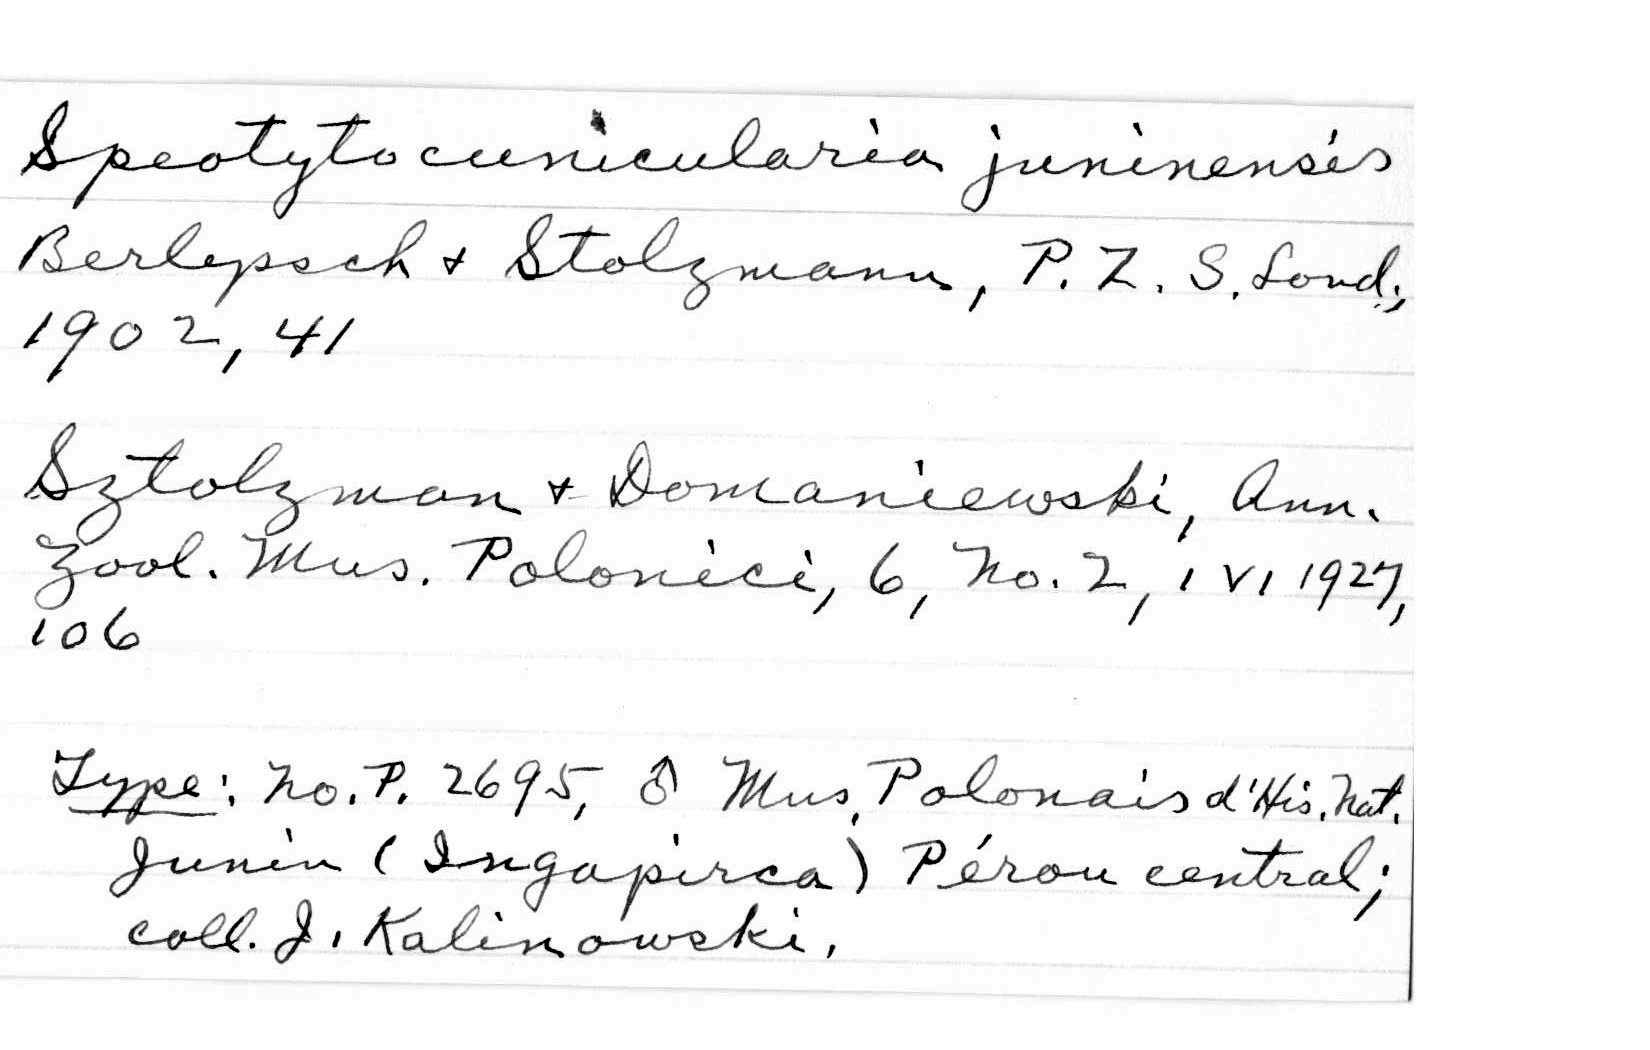 Speotyto cunicularia juninensis
Berlepsch + Stolzmann, P. Z. S. Lond.,
1902, 41
Sztolzman + Domaniewski, Ann.
Zool. Mus. Polonici, 6, No. 2, 1 VI 1927,
106
Type: No. P. 2695, ♂ Mus. Polonais d'His. Nat.
Junin (Ingapirca) Pérou central;
coll. J. Kalinowski.